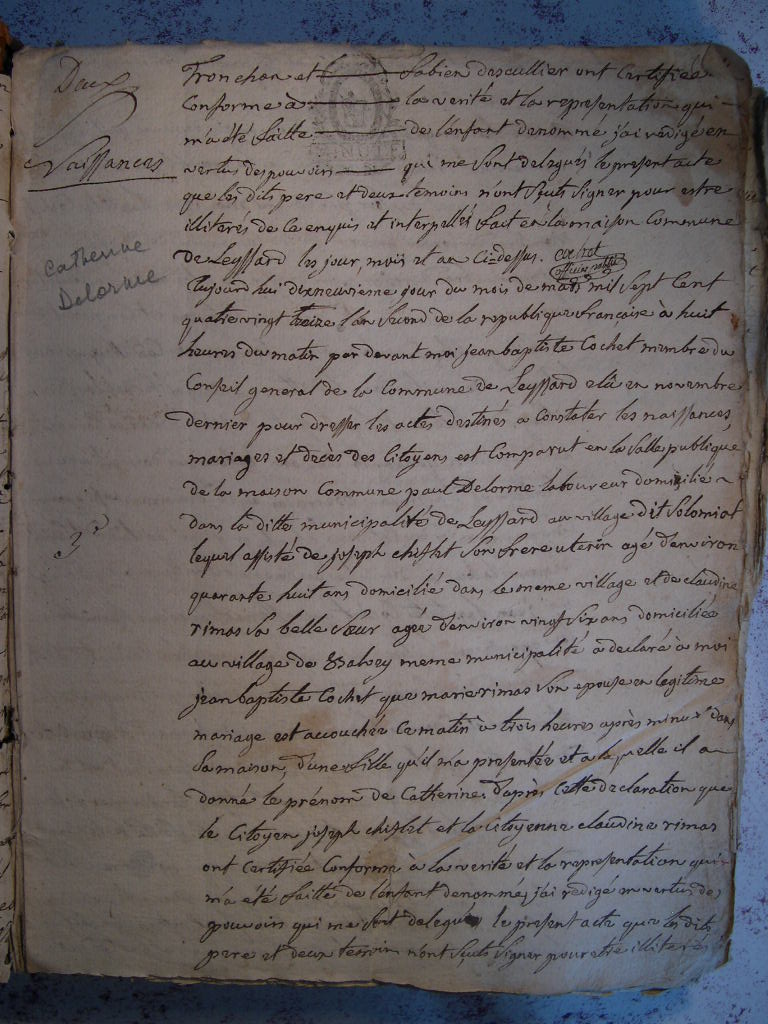 Deux
Naissances
Catherine
Delorme
3e
Tronchon et Fabien dascullier ont Certifiée
Conforme à la verité et la representation qui
m'a été faitte de l'enfant denommé j'ai redigé en
vertus des pouvoirs qui me sont delegués le present acte
que les dits pere et deux temoins n'ont sçuts signer pour estre
illiterés de ce enquis et interpellés fait en la maison Commune
de Leyssard les jour, mois et an Ci-dessus. Cochet
officier public
Aujourd'hui dixneuvieme jour du mois de mars mil sept Cent
quatre vingt treize l'an second de la republique francaise à huit
heures du matin par devant moi jean baptiste Cochet membre du
Conseil general de la Commune de Leyssard elû en novembre
dernier pour dresser les actes destinés a Constater les naissances,
mariages et decès des Citoyens est Comparut en la salle publique
de la maison Commune paul Delorme laboureur domicilié
dans la ditte municipalité de Leyssard au village dit Solomiat
lequel assisté de joseph chifflet son frere uterin agé d'environ
quarante huit ans domicilié dans le meme village et de claudine
rimas sa belle sœur agée d'environ vingt six ans domiciliée
au village de Balvay meme municipalité à declaré à moi
jean baptiste Cochet que marie rimas son epouse en legitime
mariage est accouchée Ce matin à trois heures après minuit dans
sa maison, d'une fille qu'il m'a presentée et a laquelle il a
donné le prénom de Catherine. d'après Cette declaration que
le Citoyen joseph chifflet et la citoyenne claudine rimas
ont Certifiée Conforme à la verité et la representation qui
m'a été faitte de l'enfant denommé, j'ai redigé en vertus des
pouvoirs qui me sont delegués le present acte que les dits
pere et deux temoin n'ont sçuts signer pour etre illiterés